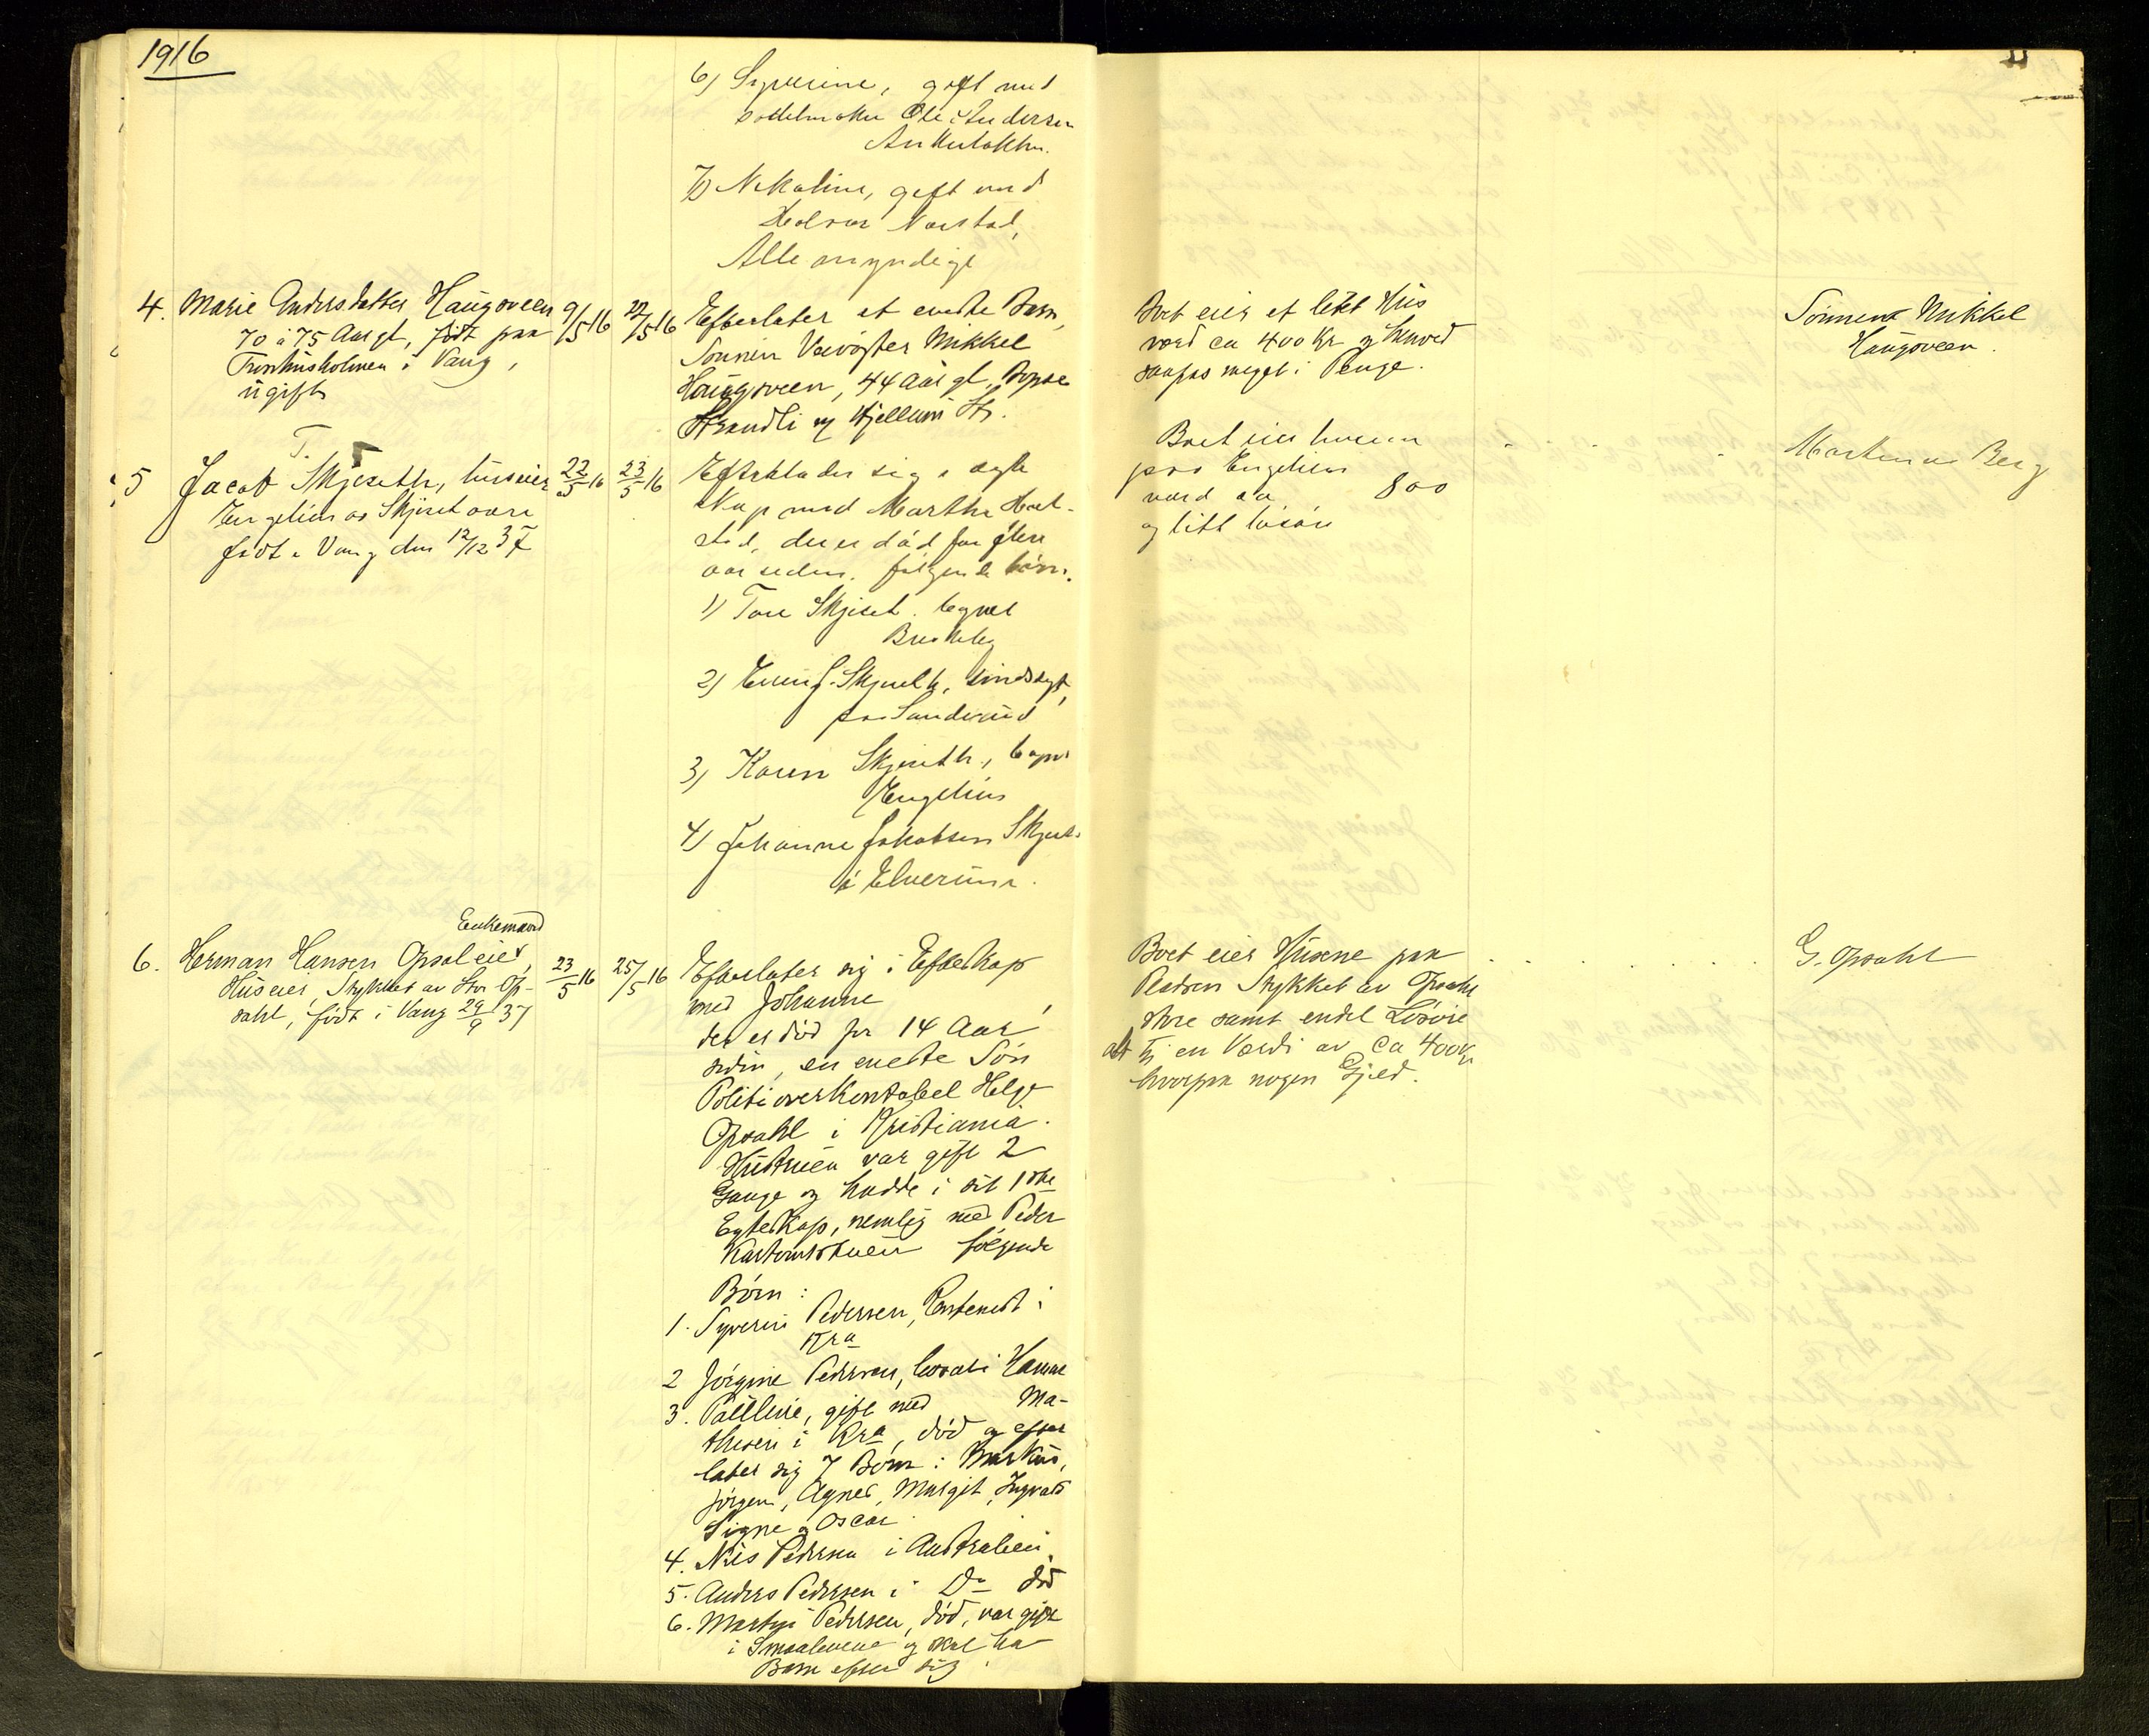 1916
6) Syverine, gift med
Ole Andersen
7) Nikoline, gift med
Halvor Narstad,
Alle myndige
4. Marie Andersdatter Haugsveen
70 à 75 Aar gl, født paa
i Vang,
ugift
9/5 16
22/5 16
Efterlater et eneste Barn,
Sønnen Veivogter Mikkel
Haugsveen, 44 Aar gl.
og Hjellum St.
Boet eier et litet Hus
værd ca 400 Kr og
meget i Penge.
Sønnen Mikkel
Haugsveen.
5 Jacob T. Skjeseth, huseier
Engelien av Skjeset øvre
født i Vang den 12/12 37
22/5 16
23/5 16
Efterlader sig i egte
skap med Marthe
stad, der er död for flere
aar siden. følgende børn.
1) Tore Skjeset.
2) Skjeseth, sindssyk,
paa Sanderud
3) Karen Skjeseth,
Engelien
4) Johanne Jakobsen
i Elverum.
Boet eier husene
paa Engelien
værd ca 800
og litt løsøre
Berg
Enkemand
6. Herman Hansen Opsaleiet,
Huseier, Stykket av Stor Op-
sahl, født i Vang 29/9 37
23/5 16
25/5 16
Efterlater sig i Egteskap
med Johanne ,
der er död for 14 Aar
siden, en eneste Søn
Politioverkonstabel Helge
Opsahl i Kristiania.
Hustruen var gift 2
Gange og hadde i sit 1ste
Egteskap, nemlig med Peder
følgende
Børn:
1. Syverin Pedersen, i
Kra
2 Jørgine Pedersen, i Hamar
3. Pauline, gift med Ma-
thisen i Kra, död og efter
later sig 7 Børn: Markus,
Jørgen, Agnes, Margit, Ingvald
Signe og Oscar.
4. Nils Pedersen i Australien.
5. Anders Pedersen i Do död
6. Pedersen, död, var gift
i Smaalenene og skal ha
Barn efter sig.
Boet eier Husene paa
Pladsen Stykket av Opsahl
store samt endel Løsøre
alt til en Værdi av ca 400 Kr
hvorpaa nogen Gjeld.
G. Opsahl